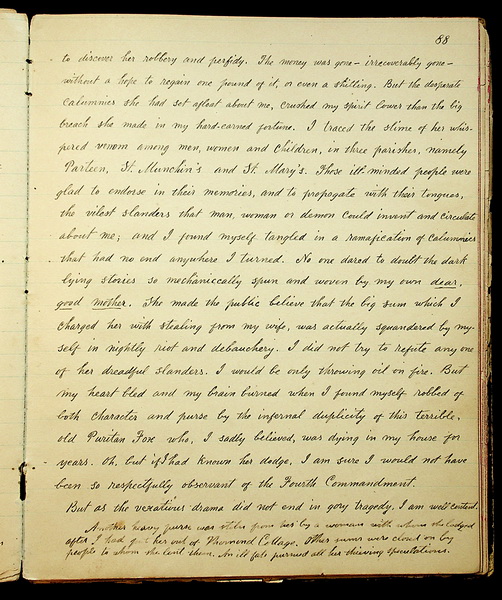 88
to discover her robbery and perfidy. The money was gone - irrecoverably gone -
without a hope to regain one pound of it, or even a shilling. But the desperate
calumnies she had set afloat about me, crushed my spirit lower than the big
breach she made in my hard-earned fortune. I traced the slime of her whis-
pered venom among men, women and children, in three parishes, namely
Parteen, St. Munchin's and St. Mary's. Those ill-minded people were
glad to endorse in their memories, and to propagate with their tongues,
the vilest slanders that man, woman or demon could invent and circulate
about me; and I found myself tangled in a ramafication of calumnies
that had no end anywhere I turned. No one dared to doubt the dark
lying stories so mechaniccally spun and woven by my own dear,
good mother. She made the public believe that the big sum which I
charged her with stealing from my wife, was actually squandered by my-
self in nightly riot and debauchery. I did not try to refute any one
of her dreadful slanders. I would be only throwing oil on fire. But
my heart bled and my brain burned when I found myself robbed of
both character and purse by the infernal duplicity of this terrible,
old Puritan Foxe who, I sadly believed, was dying in my house for
years. Oh, but if I had known her dodge, I am sure I would not have
been so respectfully observant of the Fourth Commandment.
But as the vexatious drama did not end in gory tragedy, I am well content.
Another heavy purse was stolen from her by a woman with whom she lodged
after I had got her out of Thomond Cottage. Other sums were closed on by
people to whom she lent them. An ill fate pursued all her thieving speculations.